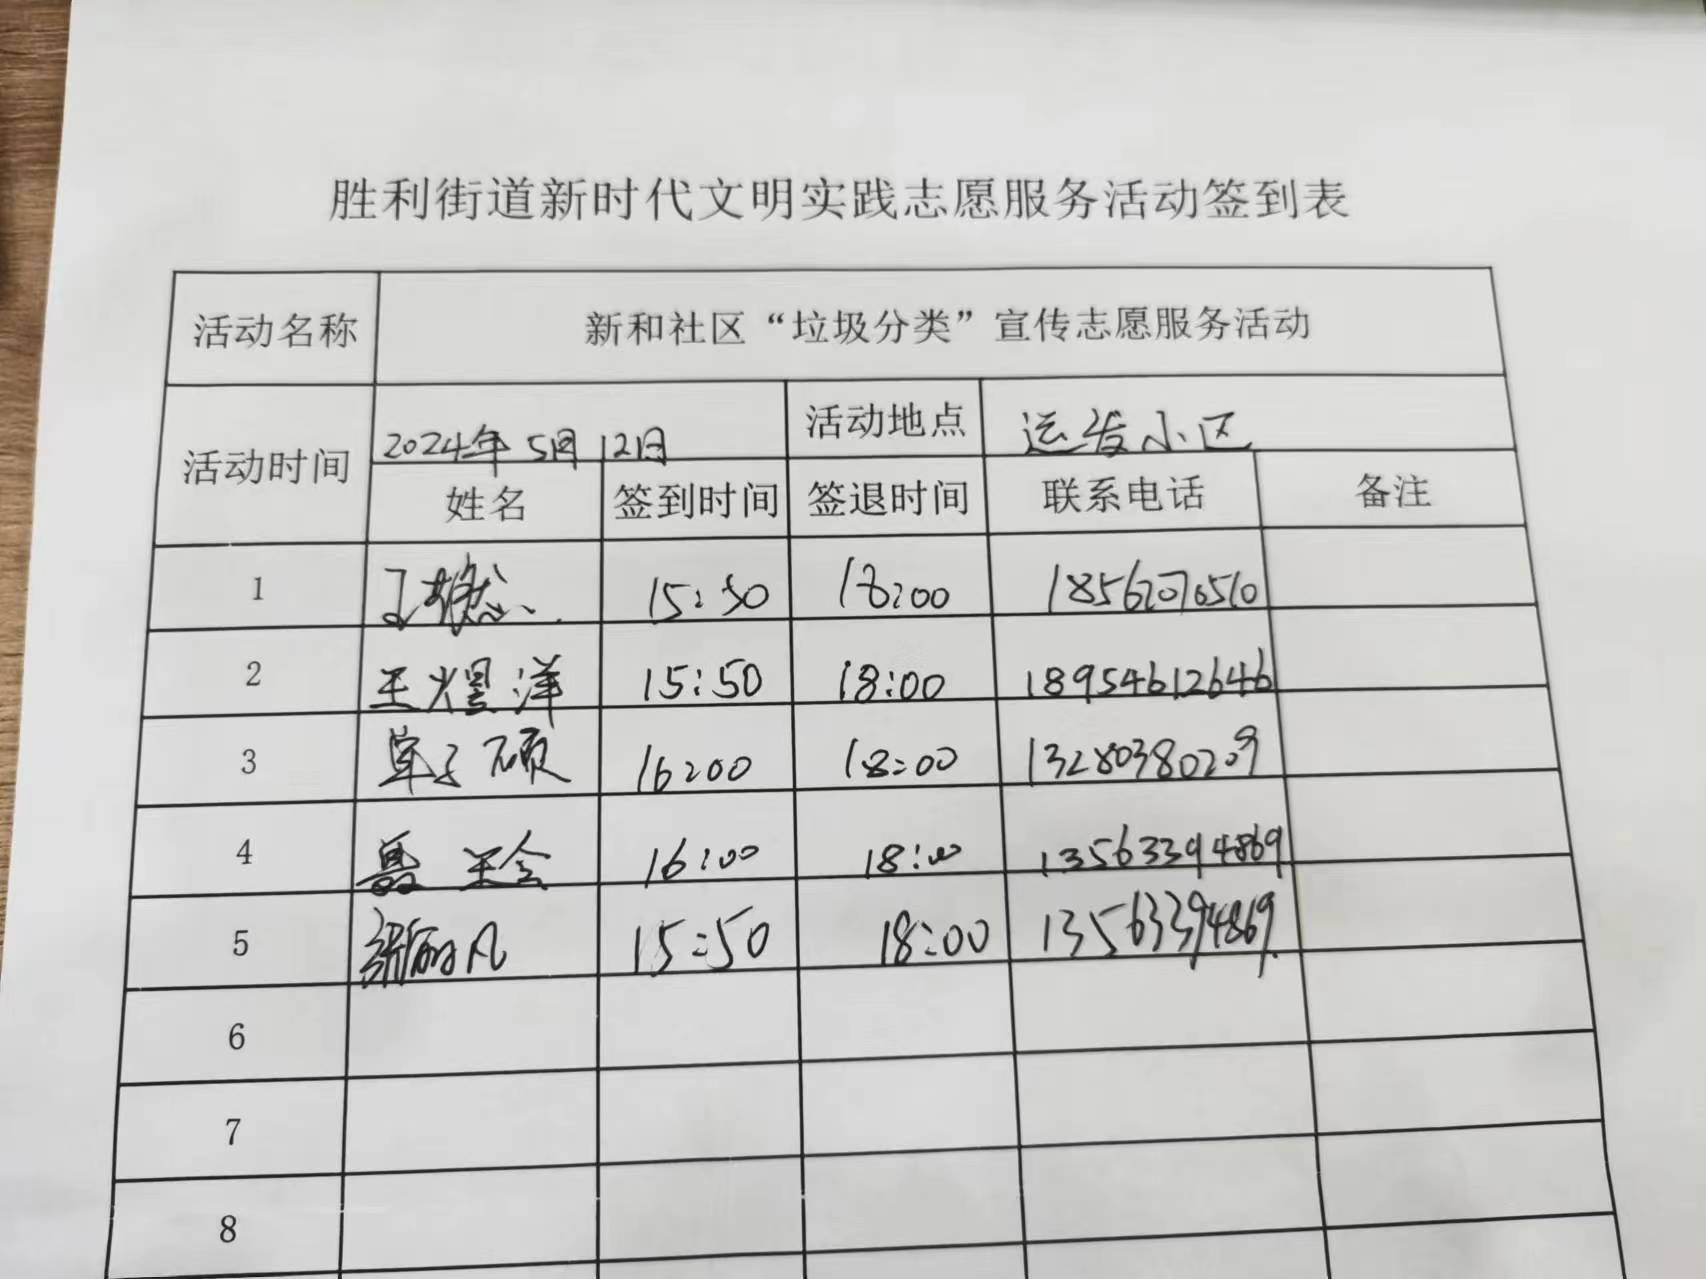 胜利街道新时代文明实践志愿服务活动签到表
活动名称 新和社区“垃圾分类”宣传志愿服务活动
活动时间 2024年5月12日 活动地点 运发小区
姓名 签到时间 签退时间 联系电话 备注
1 15:50 18:00
2 王煜洋 15:50 18:00 18954612646
3 单子硕 16:00 18:00 13280380209
4 16:00 18:00 13563394869
5 15:50 18:00 13563394869
6
7
8